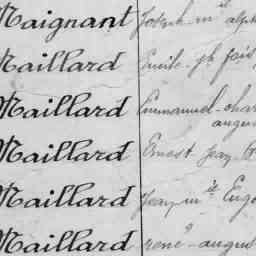 Maignant Joseph-mie alph
Maillard Emile-jh fois
Maillard Emmanuel-char
augus
Maillard Ernest Jean
Maillard Jean mie Euge
Maillard rené-august